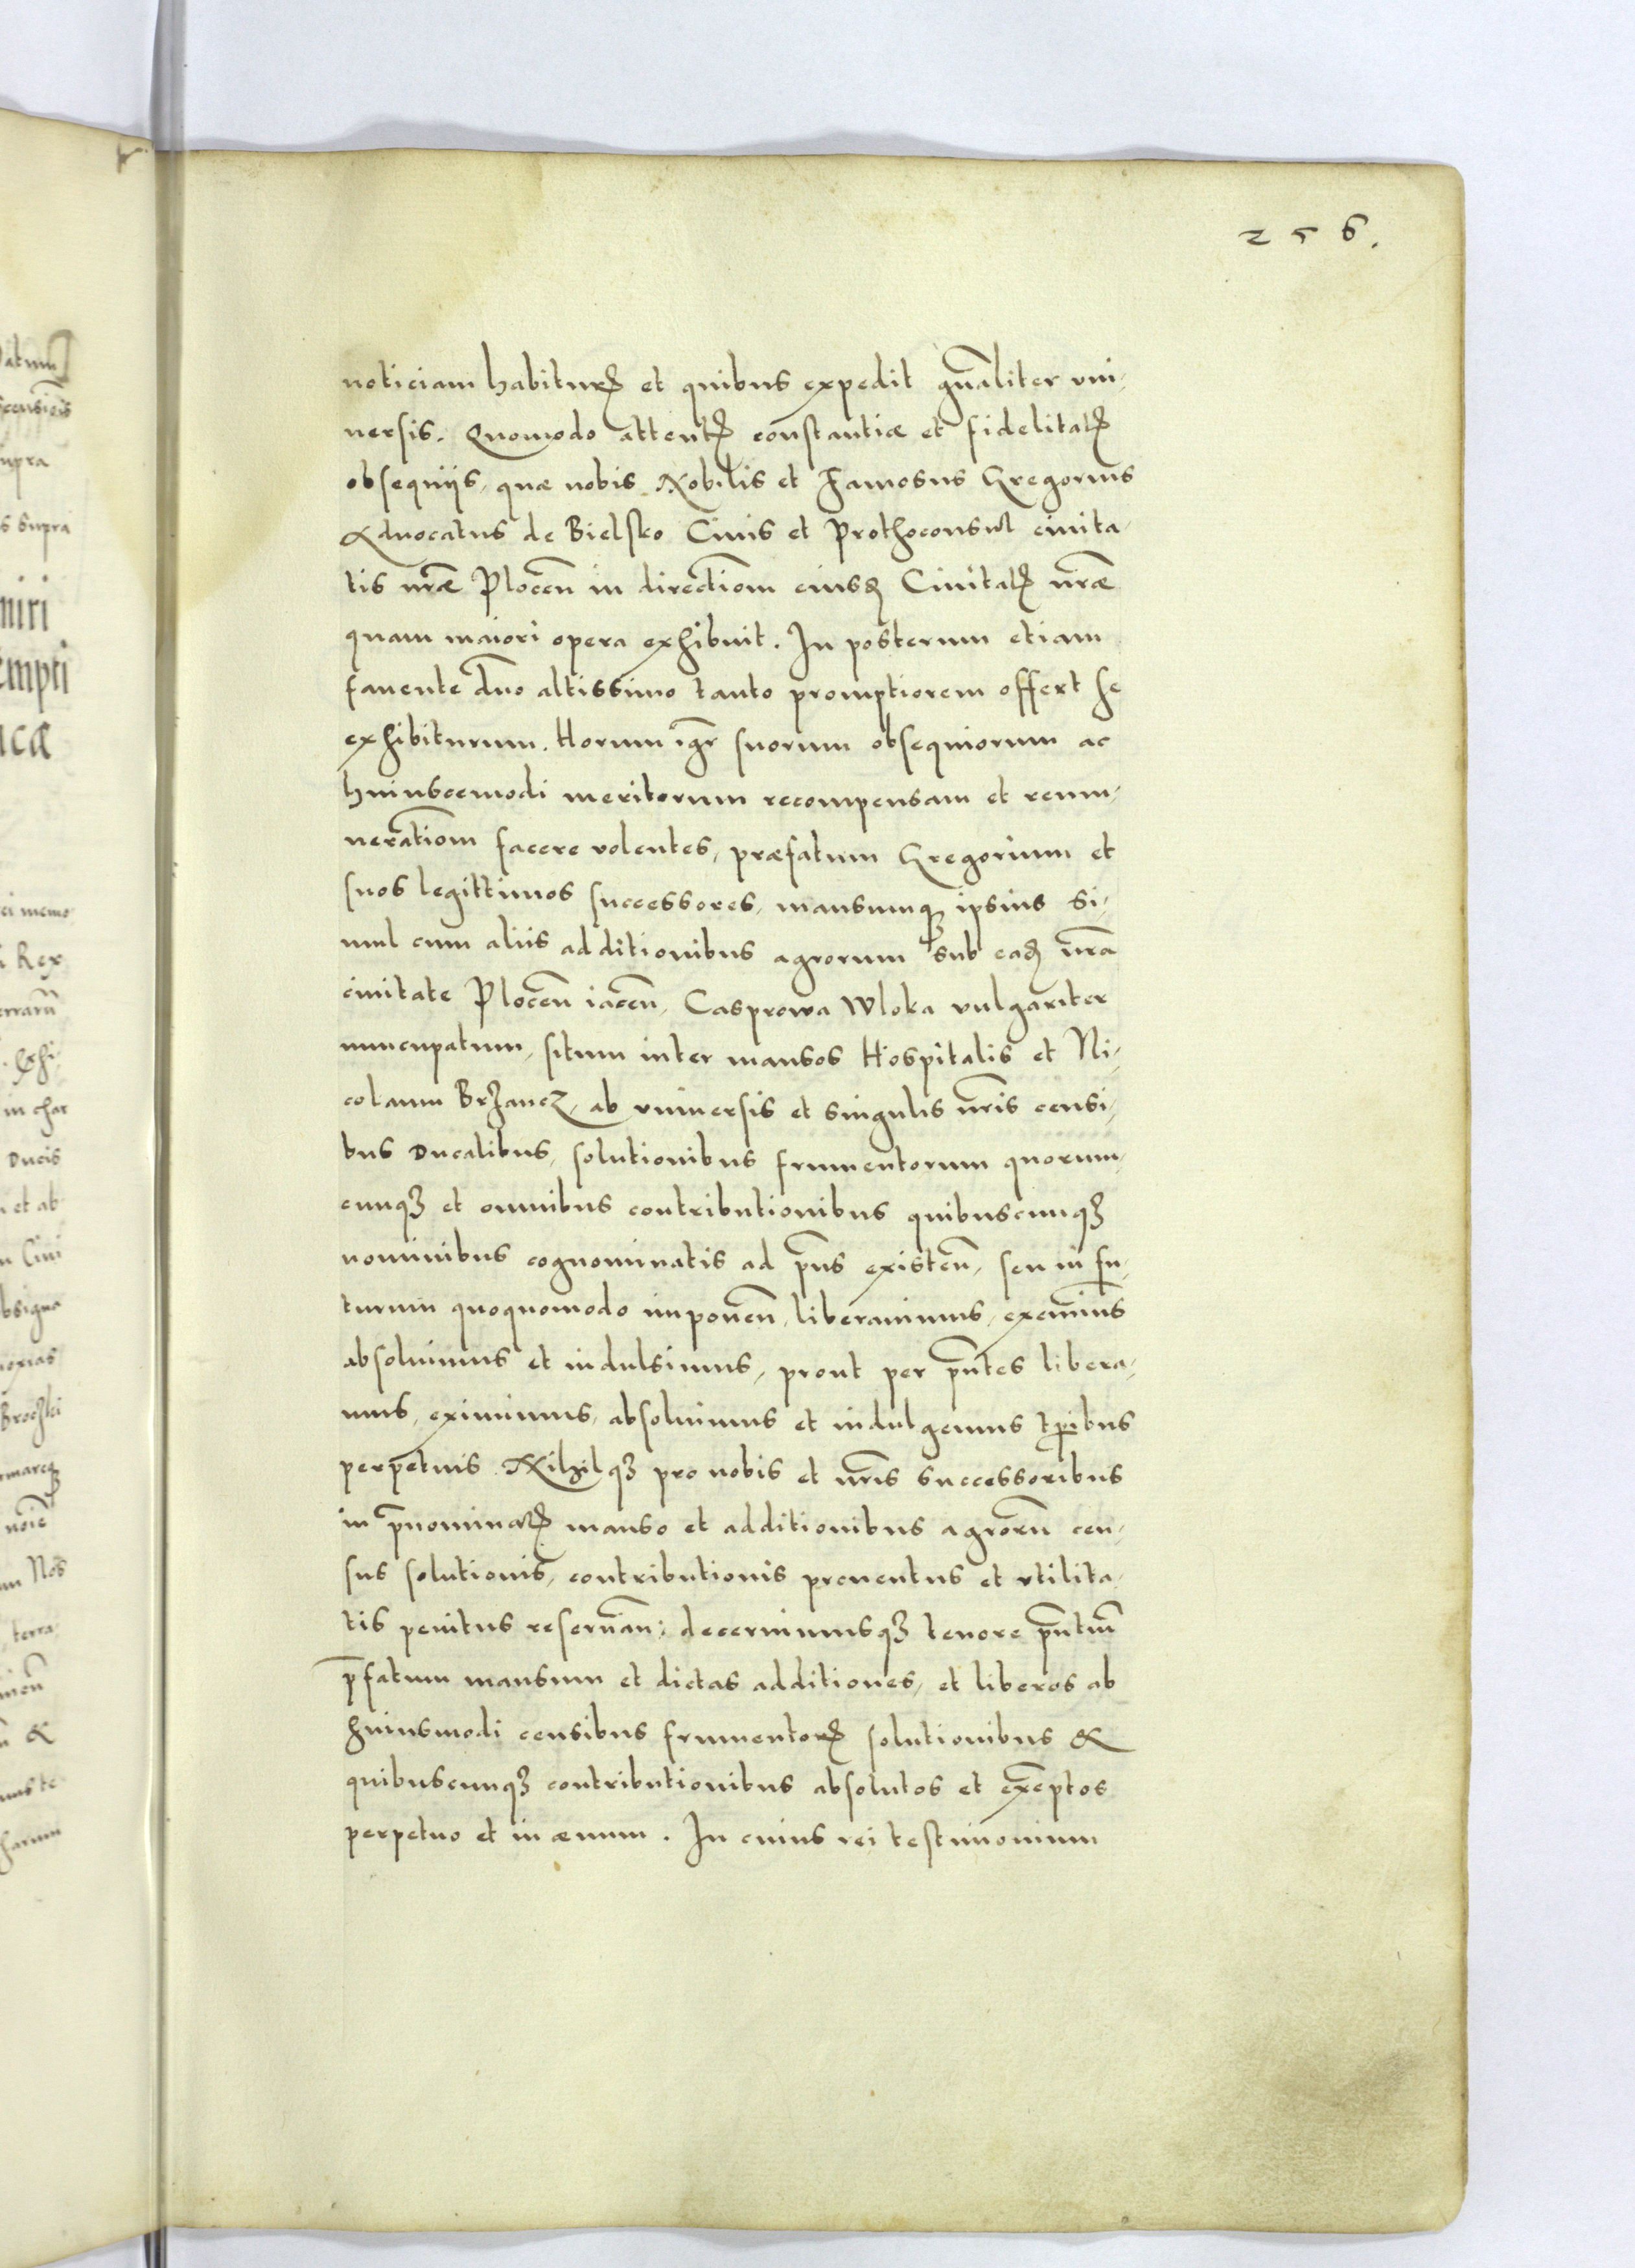 256.
noticiam habiturꝭ et quibus expedit gn̄aliter vni,
uersis. Quomodo attentꝭ constantiæ et fidelitatꝭ
obsequijs, quæ nobis Nobilis et Famosus Gregorius
Aduocatus de Bielsko Ciuis et Prothoconsul ciuita,
tis nr̄æ Plocen̄ in directiom̄ eiusꝫ Ciuitatꝭ nr̄æ
quam maiori opera exhibuit. In posterum etiam
fauente dn̄o altissimo tanto promptiorem offert se
exhibiturum. Horum igr̄ suorum obsequiorum ac
huiuscemodi meritorum recompensam et remu,
neratiom̄ facere volentes, præfatum Gregorium et
suos legittimos successores, mansumqꝫ ipsius si,
mul cum aliis additionibus agrorum sub eaꝫ nr̄a
ciuitate Plocen̄ iacen̄, Casprowa Wloka vulgariter
nuncupatum, situm inter mansos Hospitalis et Ni,
colaum Brzancz, ab vniuersis et singulis nr̄is censi,
bus Ducalibus, solutionibus frumentorum quorum,
cunqꝫ et omnibus contributionibus quibuscunqꝫ
nominibus cognominatis ad p̄ns existen̄, seu in fu,
turum quoquomodo imponen̄, liberauimus, exemim̄us
absoluimus et indulsimus, prout per pn̄tes libera,
mus, eximimus, absoluimus et indulgemus tp̄ibus
perpetuis. Nihilqꝫ pro nobis et nr̄is successoribus
in p̄nominatꝭ manso et additionibus agrorū cen,
sus solutionis, contributionis prouentus et vtilita,
tis penitus reseruan̄; decernimusqꝫ tenore pn̄tiū
p̄fatum mansum et dictas additiones, et liberos ab
huiusmodi censibus frumentorꝭ solutionibus &
quibuscunqꝫ contributionibus absolutos et exēptos
perpetuo et in æuum. In cuius rei testimonium